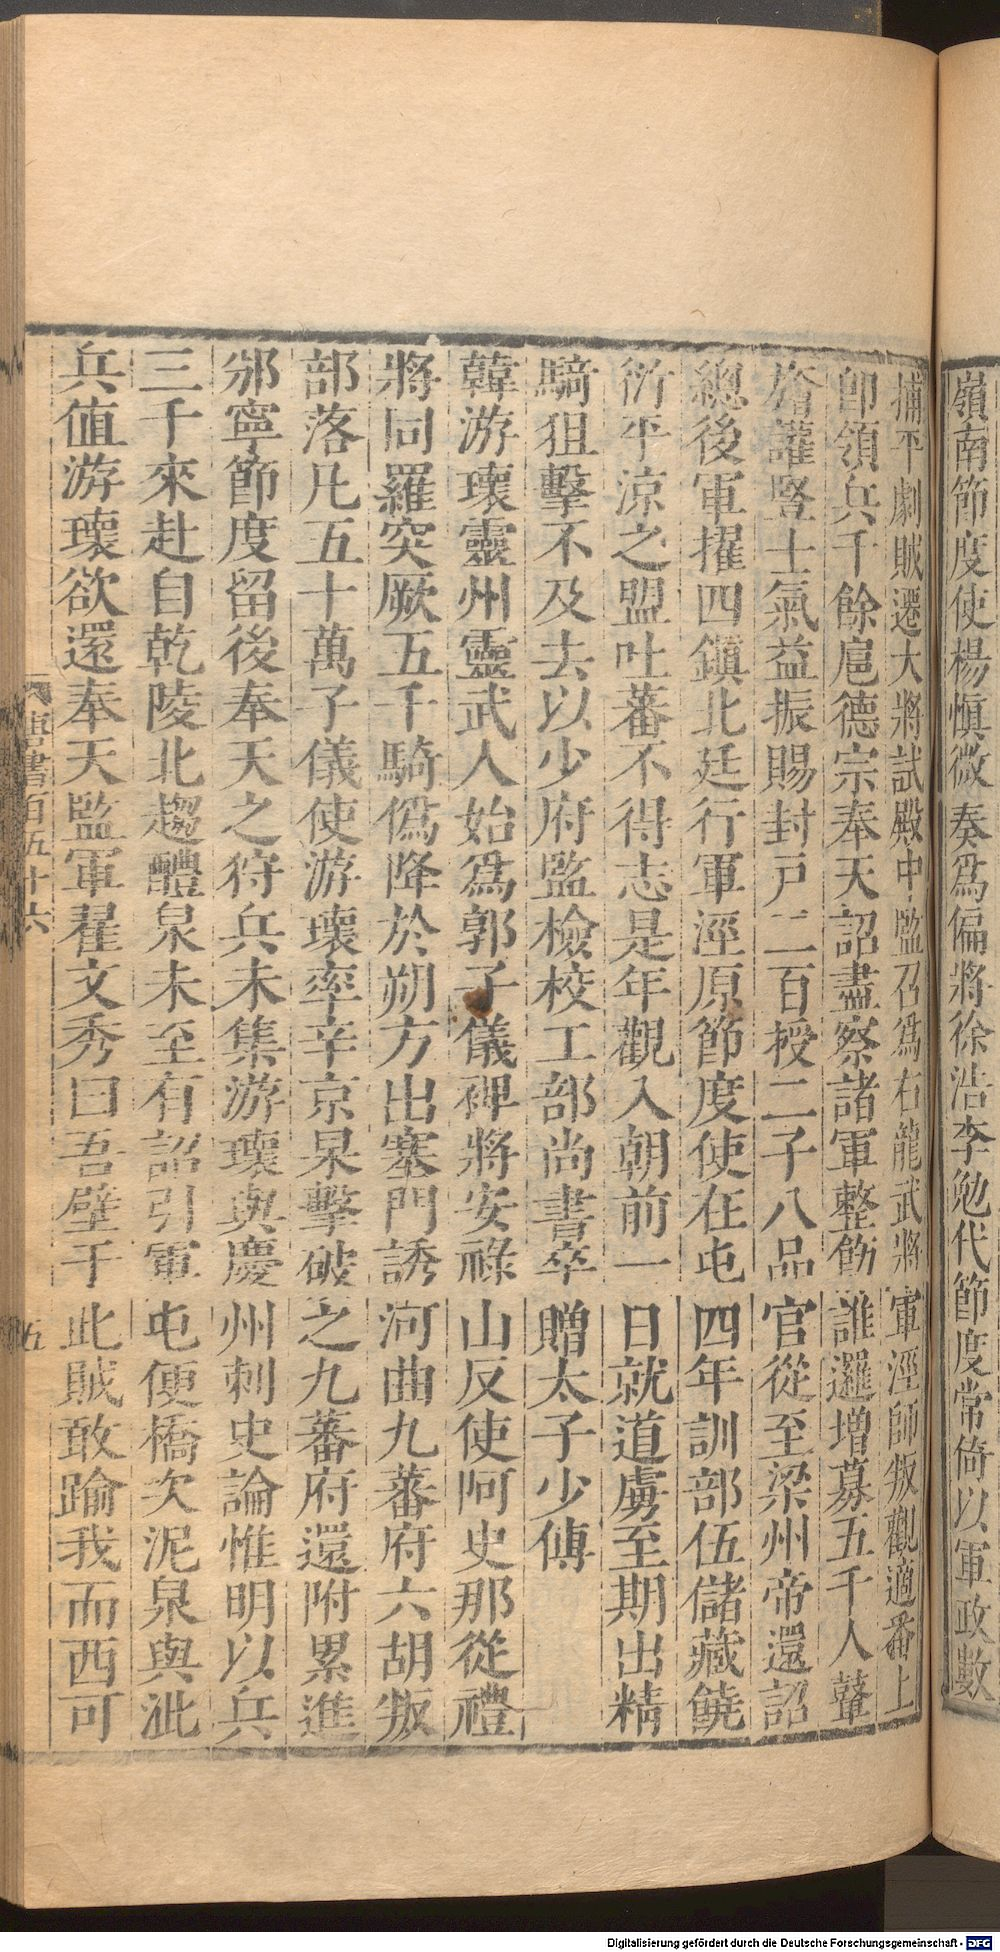 嶺南節度使楊愼微奏爲偏將徐浩李勉代節度常倚以軍政數
捕平劇賊遷大將試殿中監召爲右龍武將軍涇師叛觀適番上
卽領兵千餘扈德宗奉天詔盡察諸軍整飭誰邏增募五千人鼓
旝讙豎士氣益振賜封戶二百授二子八品官從至梁州帝還詔
總後軍擢四鎭北廷行軍涇原節度使在屯四年訓部伍儲藏饒
衍平涼之盟吐蕃不得志是年觀入朝前一日就道虜至期出精
騎狙擊不及去以少府監檢校工部尚書卒贈太子少傅
韓游瓌靈州靈武人始爲郭子儀裨將安祿山反使阿史那從禮
將同羅突厥五千騎僞降於朔方出塞門誘河曲九蕃府六胡叛
部落凡五十萬子儀使游瓌率辛京杲擊破之九蕃府還附累進
邠寧節度留後奉天之狩兵未集游瓌與慶州刺史論惟明以兵
三千來赴自乾陵北趨醴泉未至有詔引軍屯便橋次泥泉與泚
兵値游瓌欲還奉天監軍翟文秀曰吾壁于此賊敢踰我而西可
唐書百五十六
五
Digitalisierung gefördert durch die Deutsche Forschungsgemeinschaft - DFG